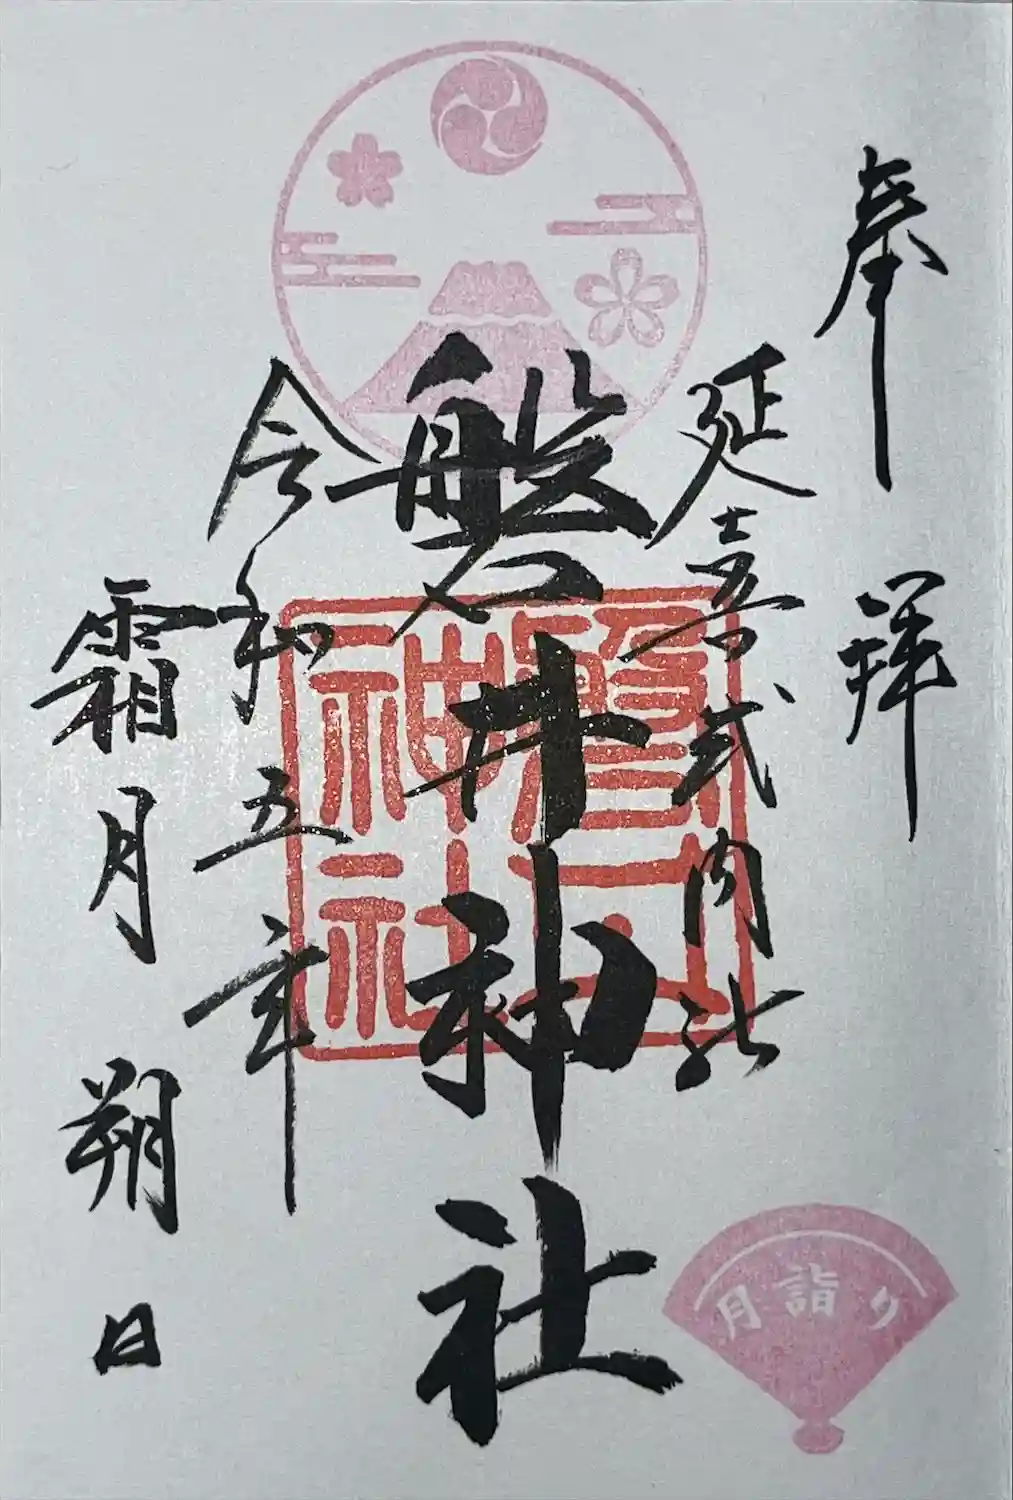 奉拝
延喜式内社
磐井神社
令和五年
霜月朔日
月詣り